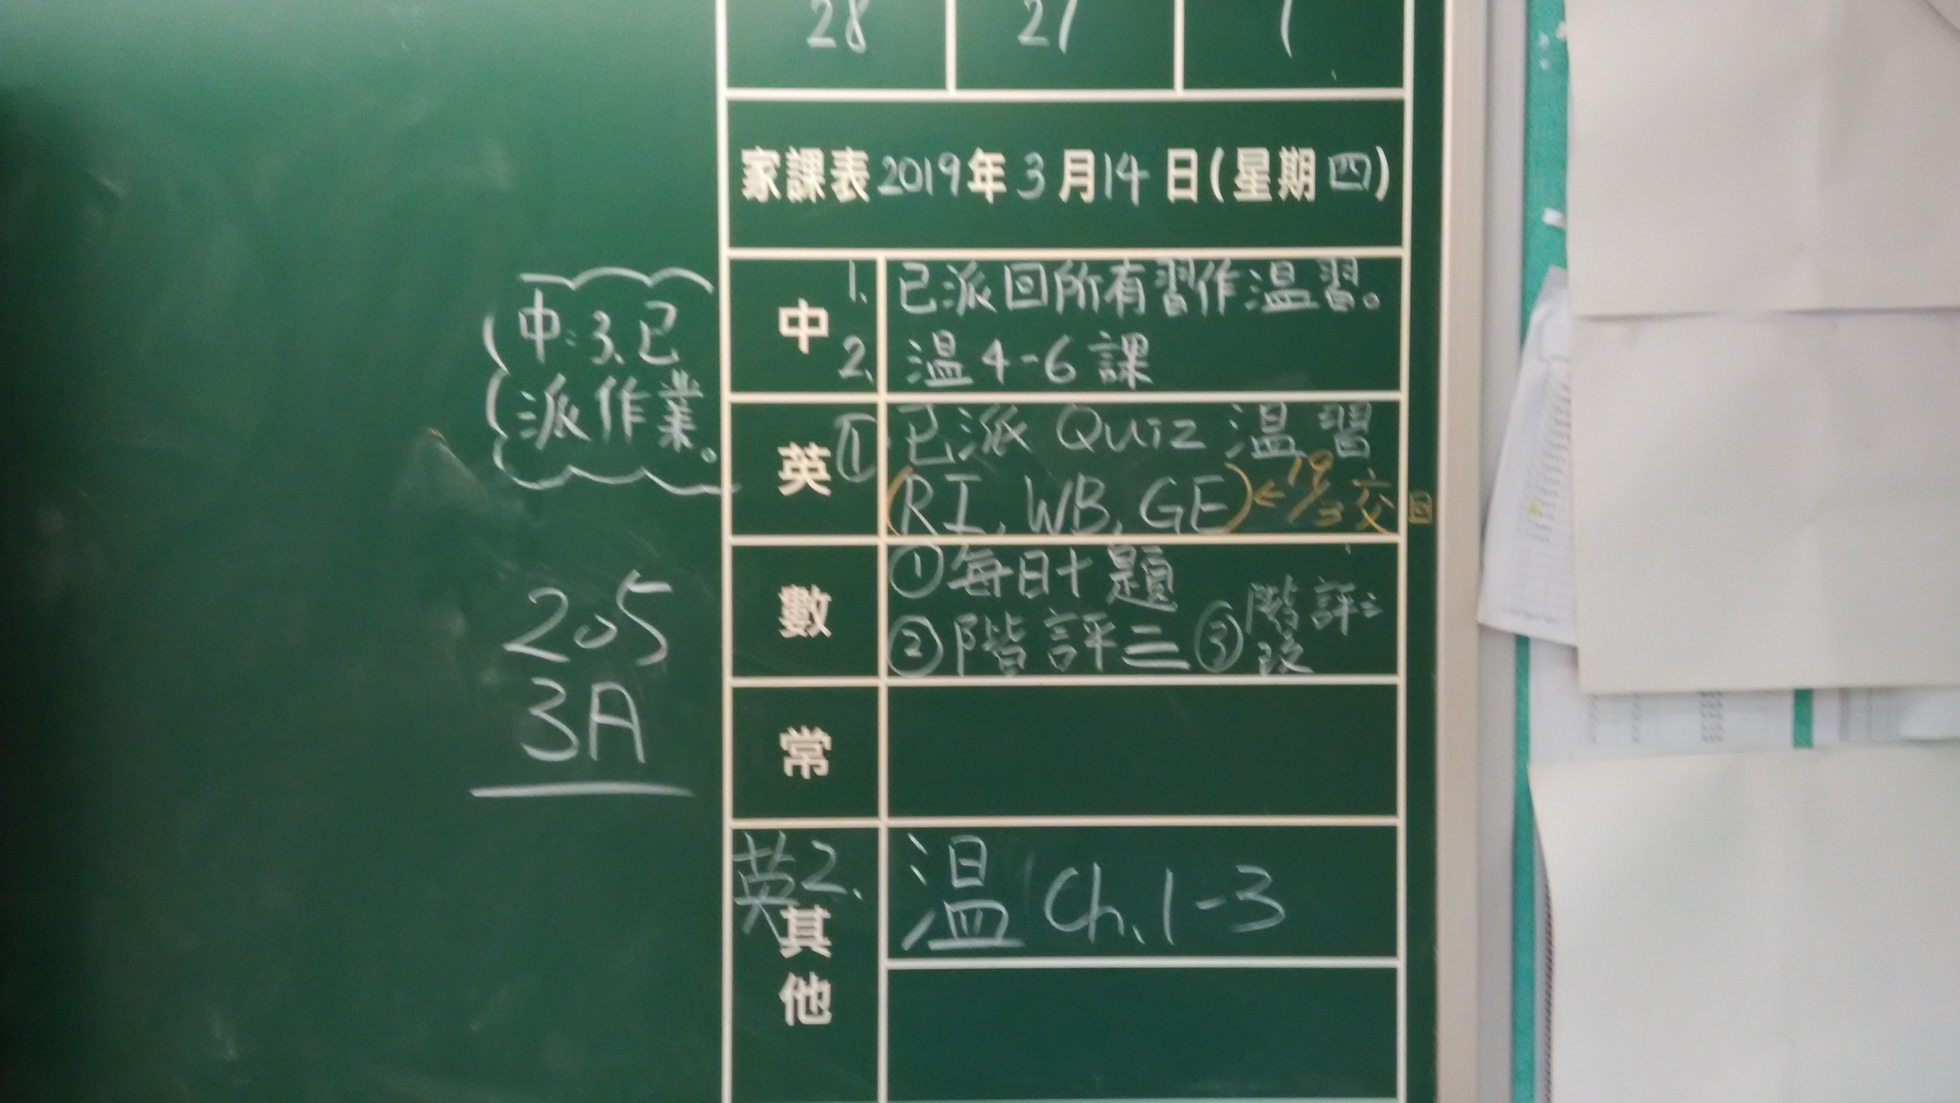 28 27 1
家課表2019年3月14日(星期四)
中 1. 已派回所有習作温習。
2. 温4-6課
中:3.已
派作業。
英 ① 已派 Quiz 温習
(RI, WB, GE) ← 19/3 交回
數 ①每日十題
②階評三 ③階評二
改
205
3A
常
英2. 温 Ch.1-3
其他